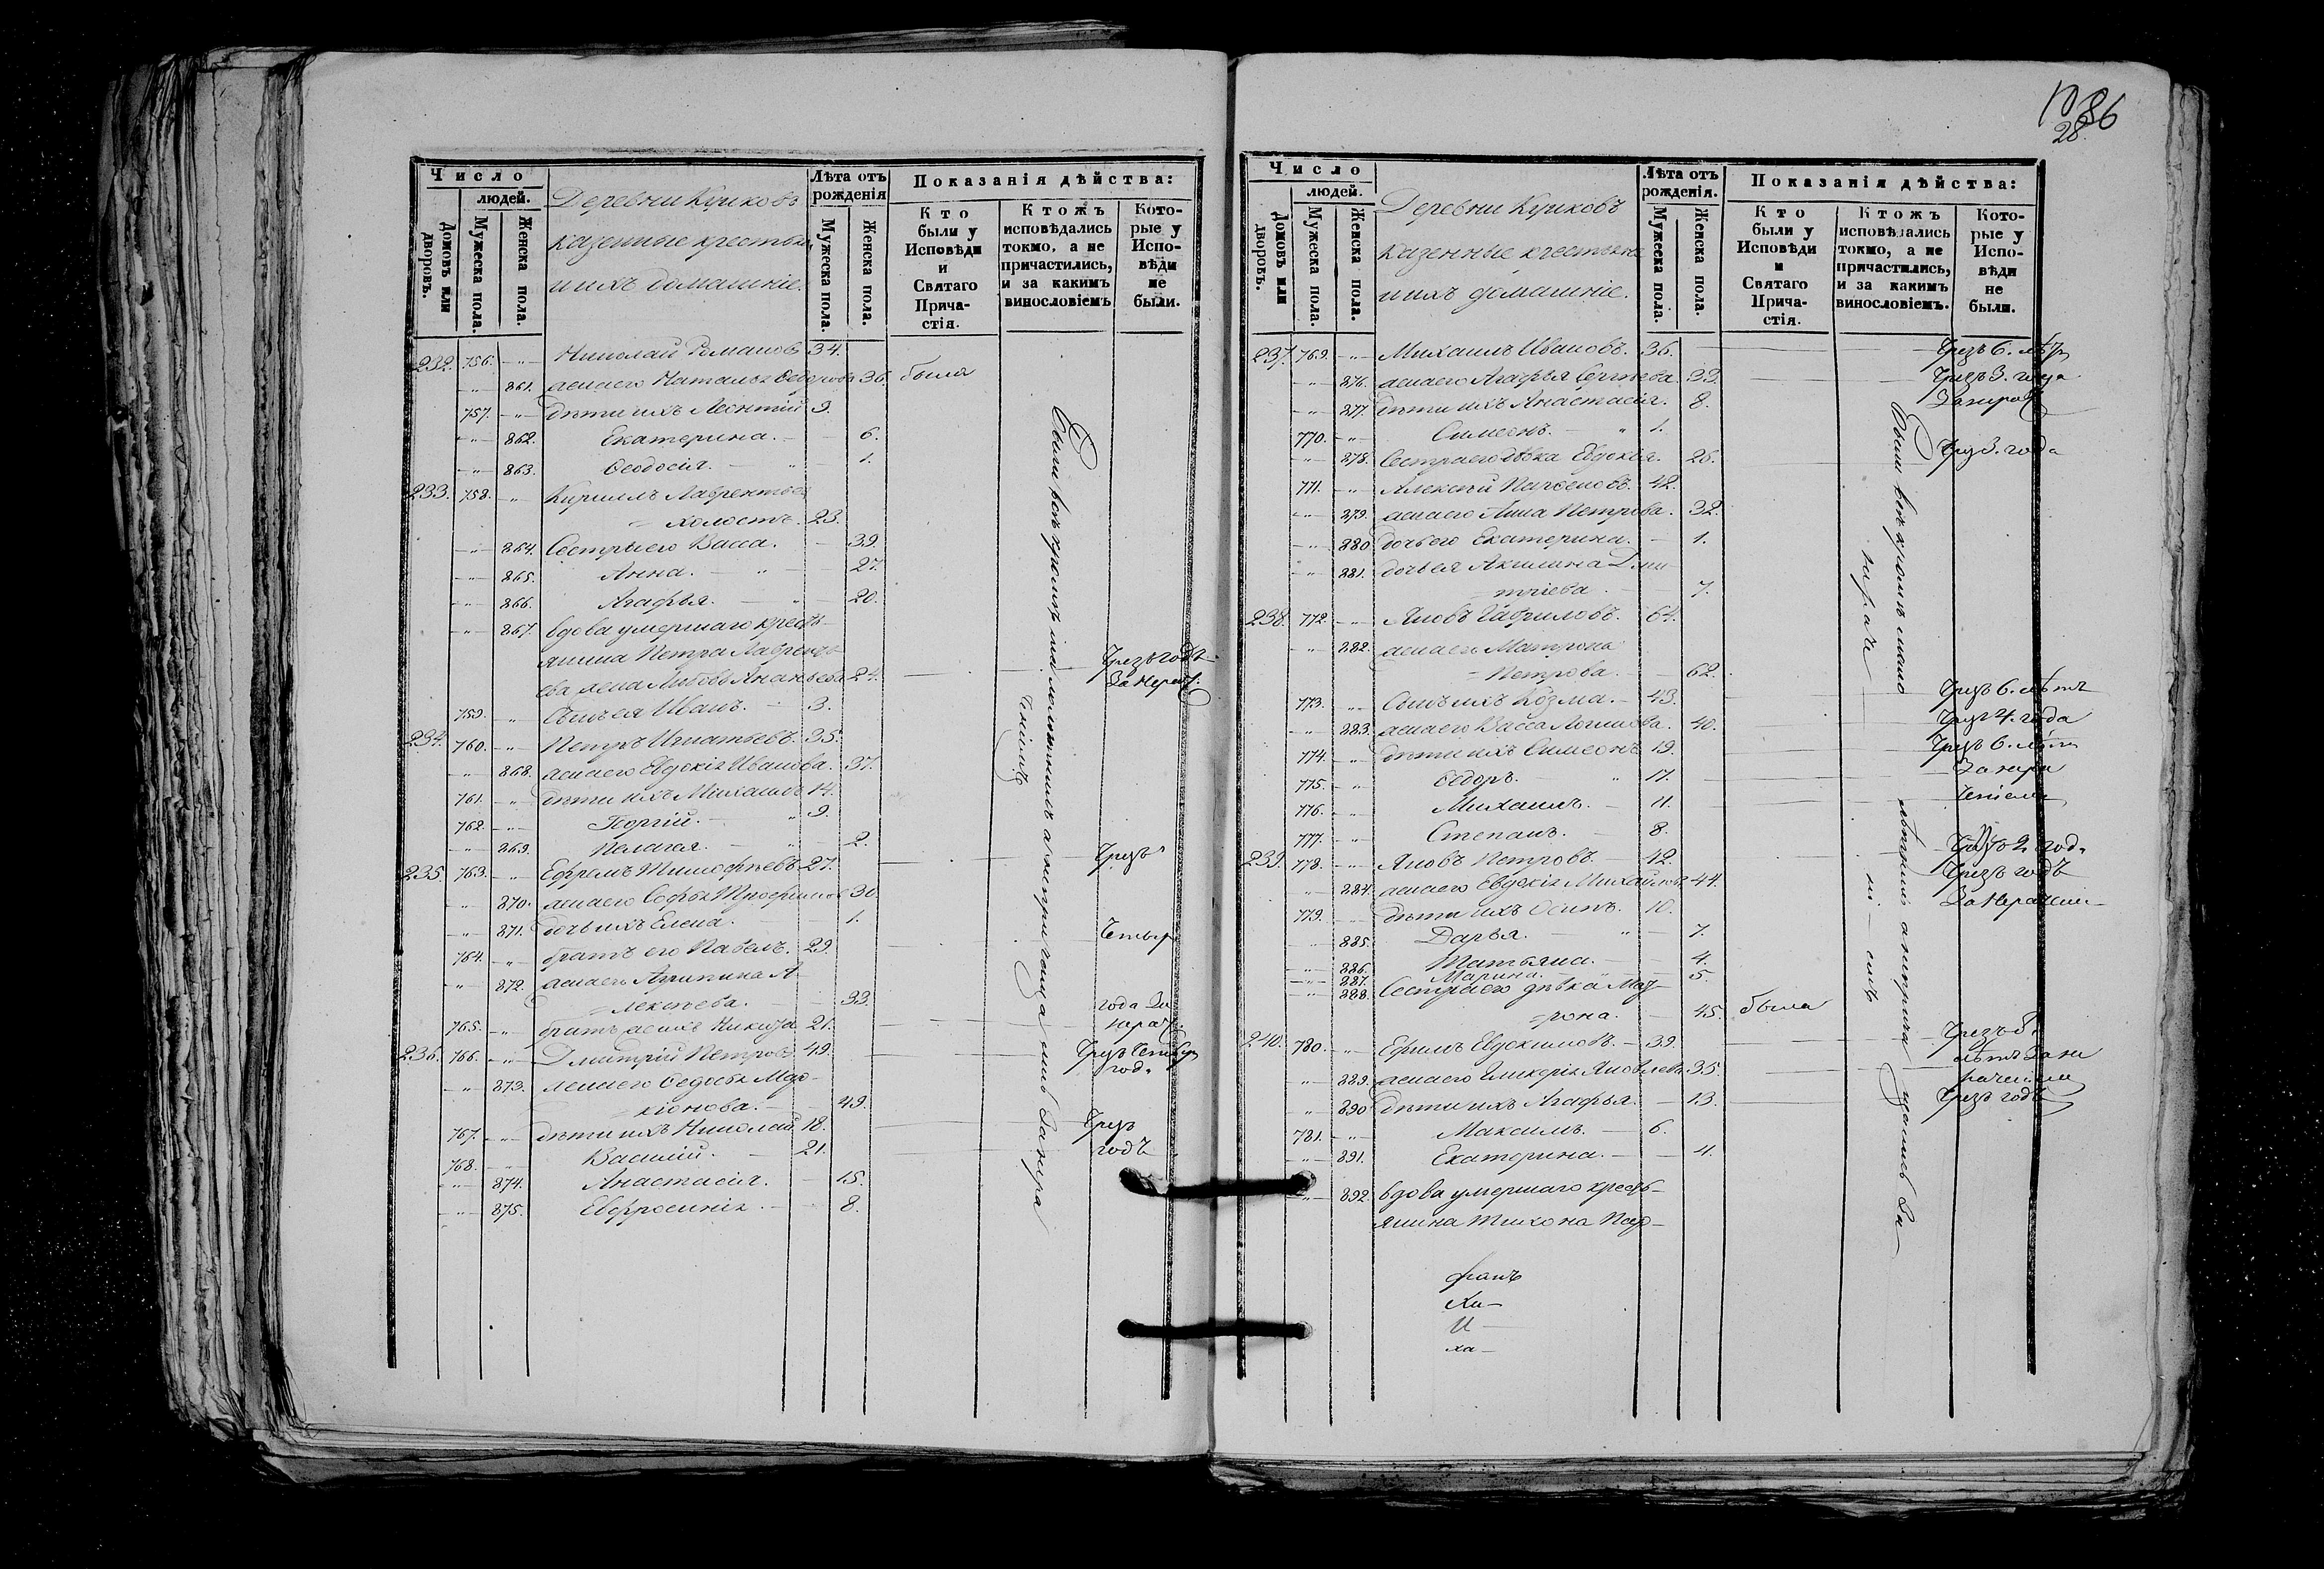 1086
28.
Число
людей.
Домовъ или дворовъ.
Мужеска пола.
Женска пола.
Деревни Куиковъ
казенные крестьяне
и ихъ домашніе.
Лѣта отъ рожденія
Мужеска пола.
Женска пола.
Показанія дѣйства:
Кто были у Исповѣди и Святаго Причастія.
Ктожъ исповѣдались токмо, а не причастились, и за какимъ винословіемъ
Которые у Исповѣди не были.
232. 756. -„- Николай Романовъ 34.
-„- 861. жена его Наталья Ѳедорова 36. была
757. -„- дѣти ихъ Леонтій 9.
-„- 862. Екатерина. - 6.
-„- 863. Ѳеодосія. - 1.
233. 758. -„- Кириллъ Лаврентьев
холостъ. 23.
-„- 864. Сестры его Васса. - 39.
-„- 865. Анна. - 27.
-„- 866. Агафья. - 20.
-„- 867. вдова умершаго кресть-
янина Петра Лавренть-
ева жена Любовь Ананьева 24. Чрезъ годъ
За нерач.
759. -„- Сынъ ея Иванъ. - 3.
234. 760. -„- Петръ Игнатьевъ. 35.
-„- 868. жена его Евдокія Иванова. 37.
761. -„- дѣти ихъ Михаилъ 14.
762. -„- Георгій. - 9.
-„- 869. Пелагея. - 2.
235. 763. -„- Ефремъ Тимофѣевъ 27. Чрезъ
-„- 870. жена его Софья Трофимов 30.
-„- 871. дочь ихъ Елена. - 1.
764. -„- братъ его Павелъ. 29. Четыр
-„- 872. жена его Агрипина А-
лексѣева. - 33. года За
765. -„- братъ же ихъ Никита 21. нерач.
236. 766. -„- Дмитрій Петровъ 49. Чрезъ Четыр
год.
-„- 873. жена его Ѳедосья Мар-
кіонова. - 49.
767. -„- дѣти ихъ Николай 18. Чрез
768. -„- Василій. - 21. годъ
-„- 874. Анастасія. - 15.
-„- 875. Евфросинія. - 8.
Число
людей.
Домовъ или дворовъ.
Мужеска пола.
Женска пола.
Деревни Куиковъ
Казенные крестьяне
и ихъ домашніе.
Лѣта отъ рожденія.
Мужеска пола.
Женска пола.
Показанія дѣйства:
Кто были у Исповѣди и Святаго Причастія.
Ктожъ исповѣдались токмо, а не причастились, и за какимъ винословіемъ.
Которые у Исповѣди не были.
237. 769. -„- Михаилъ Ивановъ. 36. Чрезъ 6. лѣтъ
-„- 876. жена его Агафья Сергѣева. 33. Чрезъ 3. года
-„- 877. дѣти ихъ Анастасія. 8.
770. -„- Симеонъ. - 1.
-„- 878. Сестра его дѣвка Евдокія. 25. Чрез 3. года
771. -„- Алексѣй Парѳеновъ. 42.
-„- 879. жена его Анна Петрова. 32.
-„- 880. дочь его Екатерина. - 1.
-„- 881. дочь ея Акилина Дми-
тріева. - 7.
238. 772. -„- Яковъ Гавриловъ. 64.
-„- 882. жена его Матрона
Петрова. - 62.
773. -„- Сынъ ихъ Козма. - 43. Чрезъ 6. лѣтъ
-„- 883. жена его Васса Логинова. 40. Чрез 4. года
774. -„- дѣти ихъ Симеонъ 19. Чрезъ 6. лѣтъ
775. -„- Ѳедоръ. - 17.
776. -„- Михаилъ. - 11.
777. -„- Степанъ. - 8.
239. 778. -„- Яковъ Петровъ. - 42.
-„- 884. жена его Евдокія Михайлов 44. Чрезъ годъ
779. -„- дѣти ихъ Осипъ. 10. За Нерачені-
-„- 885. Дарья. - 7.
-„- 886. Татьяна. - 4.
-„- 887. Марина. - 5.
-„- 888. Сестра его дѣвка Мат-
рона. - 45. была
240. 780. -„- Ефимъ Евдокимовъ. - 39.
-„- 889. жена его Гликерія Яковлева 35.
-„- 890. дѣти ихъ Агафья. - 13. Чрезъ годъ
781. -„- Максимъ. - 6.
-„- 891. Екатерина. - 4.
-„- 892. вдова умершаго кресть-
янина Тихона Пар-